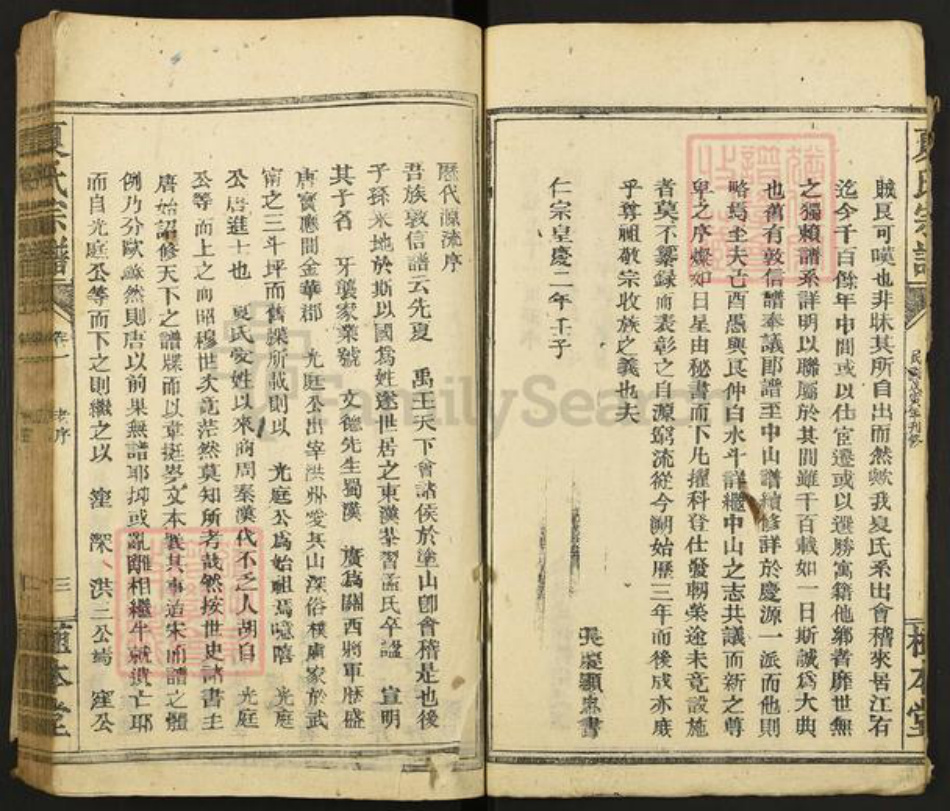 賊良可嘆也非昧其所自出而然歟我夏氏系出會稽來居江右
迄今千百餘年中間或以仕宦遷或以選勝寓籍他鄉者靡世無
之獨賴譜系詳明以聯屬於其間雖千百載如一日斯誠為大典
也舊有敦信譜奉議郎譜至中山譜續修詳於慶源一派而他則
略焉至夫己酉愚與良仲白水斗詳繼中山之志共議而新之尊
卑之序燦如日星由秘書而下凡擢科登仕發軔榮途未竟設施
者莫不纂録而表彰之自源窮流從今溯始歷三年而後成亦庶
乎尊祖敬宗收族之義也夫
仁宗皇慶二年壬子
長慶顯忠書
歷代源流序
吾族敦信譜云先夏 禹王天下會諸侯於塗山卽會稽是也後
子孫采地於斯以國爲姓遂世居之東漢恭習孟氏卒謚 宣明
其子名 牙襲家業號 文德先生蜀漢 廣爲關西將軍歷盛
唐寶應間金華郡 光庭公出宰洪州愛其山深俗樸廣家於武
甯之三斗坪而舊諜所載則以 光庭公爲始祖焉噫嘻 光庭
公唐進士也 夏氏受姓以來商周秦漢代不乏人胡自 光庭
公等而上之而昭穆世次竟茫然莫知所考哉然按世史諸書主
唐始詔修天下之譜牒而以韋挺岑文本裁其事迨宋而譜之體
例乃分歐蘇然則唐以前果無譜耶抑或亂離相繼半就遺亡耶
而自光庭公等而下之則繼之以 窪 深、洪三公焉 窪公
夏氏宗譜
卷一 老序
三
植本堂
夏氏宗譜
植本堂
FamilySearch